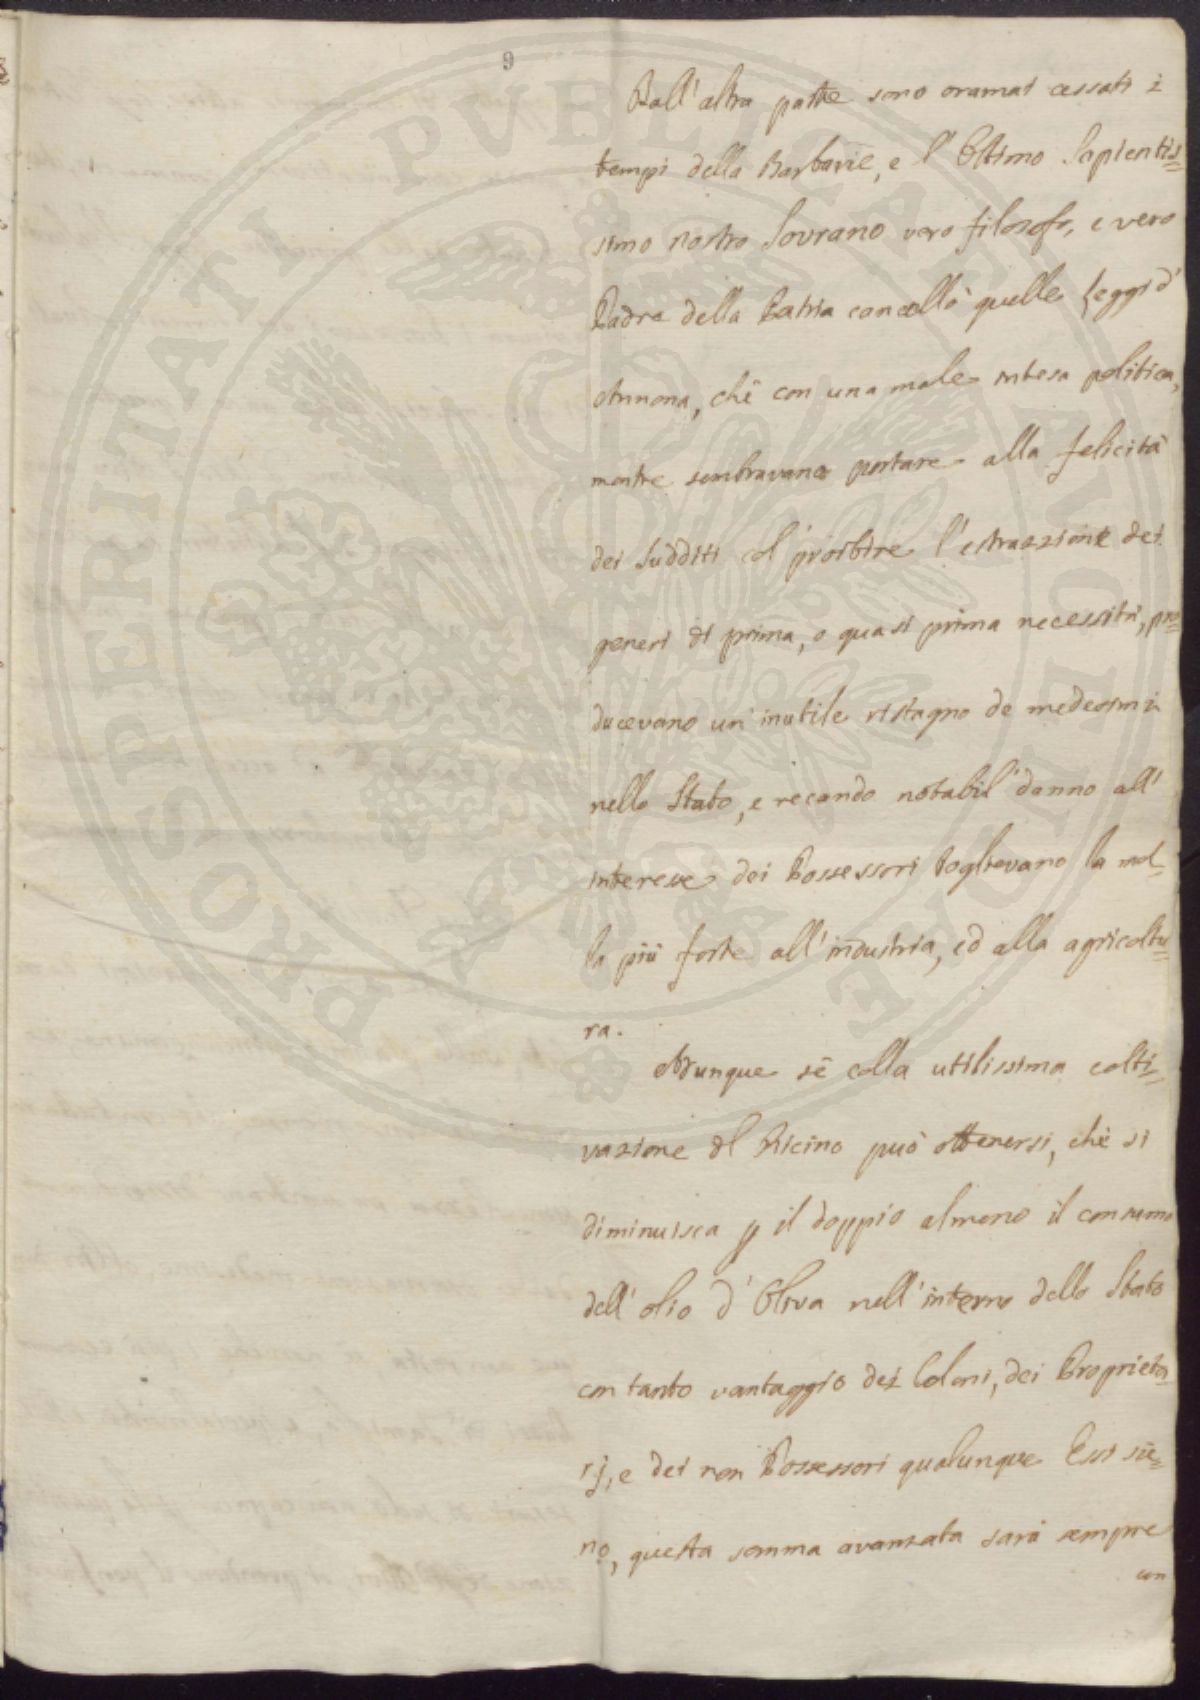 9
Dall'altra parte sono oramai cessati i
tempi della Barbarie, e l'Ottimo Sapientis=
simo nostro Sovrano vero filosofo, e vero
Padre della Patria cancellò quelle Leggi d'
Annona, chè con una male intesa politica,
mentre sembravano portare alla felicità
dei Sudditi col proibire l'estrazzione dei
generi di prima, o quasi prima necessità, pro=
ducevano un'inutile ristagno de medesimi
nello Stato, e recando notabil danno all'
interesse dei Possessori toglievano la mol=
la più forte all'industria, ed alla agricoltu=
ra.
Adunque sè colla utilissima colti=
vazione del Ricino può ottenersi, chè si
diminuisca p il doppio almeno il consumo
dell'olio d'Oliva nell'interno dello Stato
con tanto vantaggio dei Coloni, dei Proprieta=
rj, e dei non Possessori qualunque Essi sie=
no, questa somma avanzata sarà sempre
un
PROSPERITATI PVBLICAE AVGENDAE